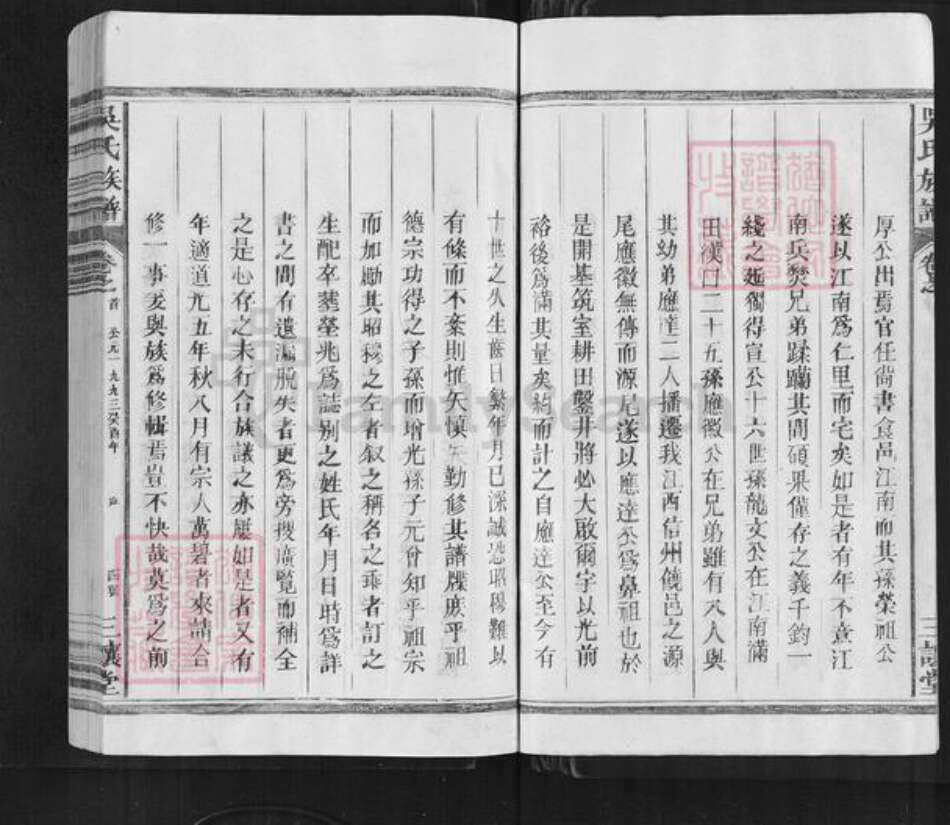 吳氏族譜
卷之
厚公出焉官任尚書食邑江南而其孫榮祖公
遂以江南爲仁里而宅矣如是者有年不意江
南兵燹兄弟蹂躪其間碩果僅存之義千鈞一
綫之延獨得宣公十六世孫龍文公在江南滿
田濮口二十五孫應徽公在兄弟雖有八人與
其幼弟應達二人播遷我江西信州饒邑之源
尾應徽無傳而源尾遂以應達公爲鼻祖也於
是開基筑室耕田鑿井將必大啟爾宇以光前
裕後爲滿其量矣約而計之自應達公至今有
三讓堂
十世之久生齒日繁年月已深誠恐昭穆難以
有條而不紊則惟矢慎矢勤修其譜牒庶乎祖
德宗功得之子孫而增光孫子元曾知乎祖宗
而加勵其昭穆之左者叙之稱名之乖者訂之
生配卒塟塋兆爲誌别之姓氏年月日時爲詳
書之間有遺漏脱失者更爲旁搜廣覽而補全
之是心存之未行合族議之亦屢如是者又有
年適道光五年秋八月有宗人萬碧者來請合
修一事爰與族爲修輯焉豈不快哉莫爲之前
吳氏族譜
卷之首
公元一九九三癸酉年
三讓堂
FamilySearch